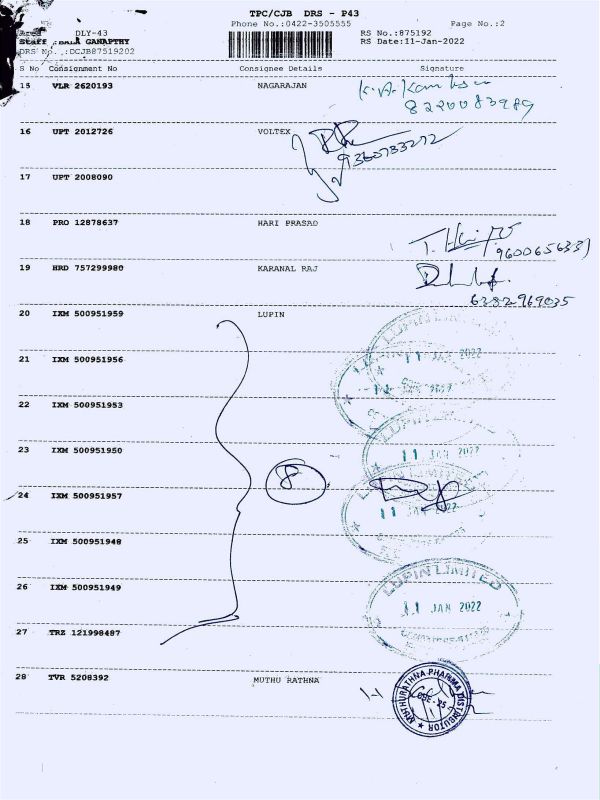 TPC/CJB DRS - P43
Phone No.:0422-3505555 Page No.:2
Area DLY-43 RS No.:875192
Staff :BALA GANAPTHY RS Date:11-Jan-2022
DRS No.,:DCJB87519202
S No Consignment No Consignee Details Signature
15 VLR 2620193 NAGARAJAN
8220083989
16 UPT 2012726 VOLTEX
9360733272
17 UPT 2008090
18 PRO 12878637 HARI PRASAD
T. Hari
9600656331
19 HRD 757299980 KARANAL RAJ
6382969035
20 IXM 500951959 LUPIN
LUPIN LIMITED
11 JAN 2022
21 IXM 500951956
22 IXM 500951953
23 IXM 500951950
11 JAN 2022
8
24 IXM 500951957
11 JAN 2022
25 IXM 500951948
26 IXM 500951949
LUPIN LIMITED
11 JAN 2022
27 TRZ 121998487
28 TVR 5208392 MUTHU RATHNA
MUTHURATHNA PHARMA DISTRIBUTOR
CBE-25